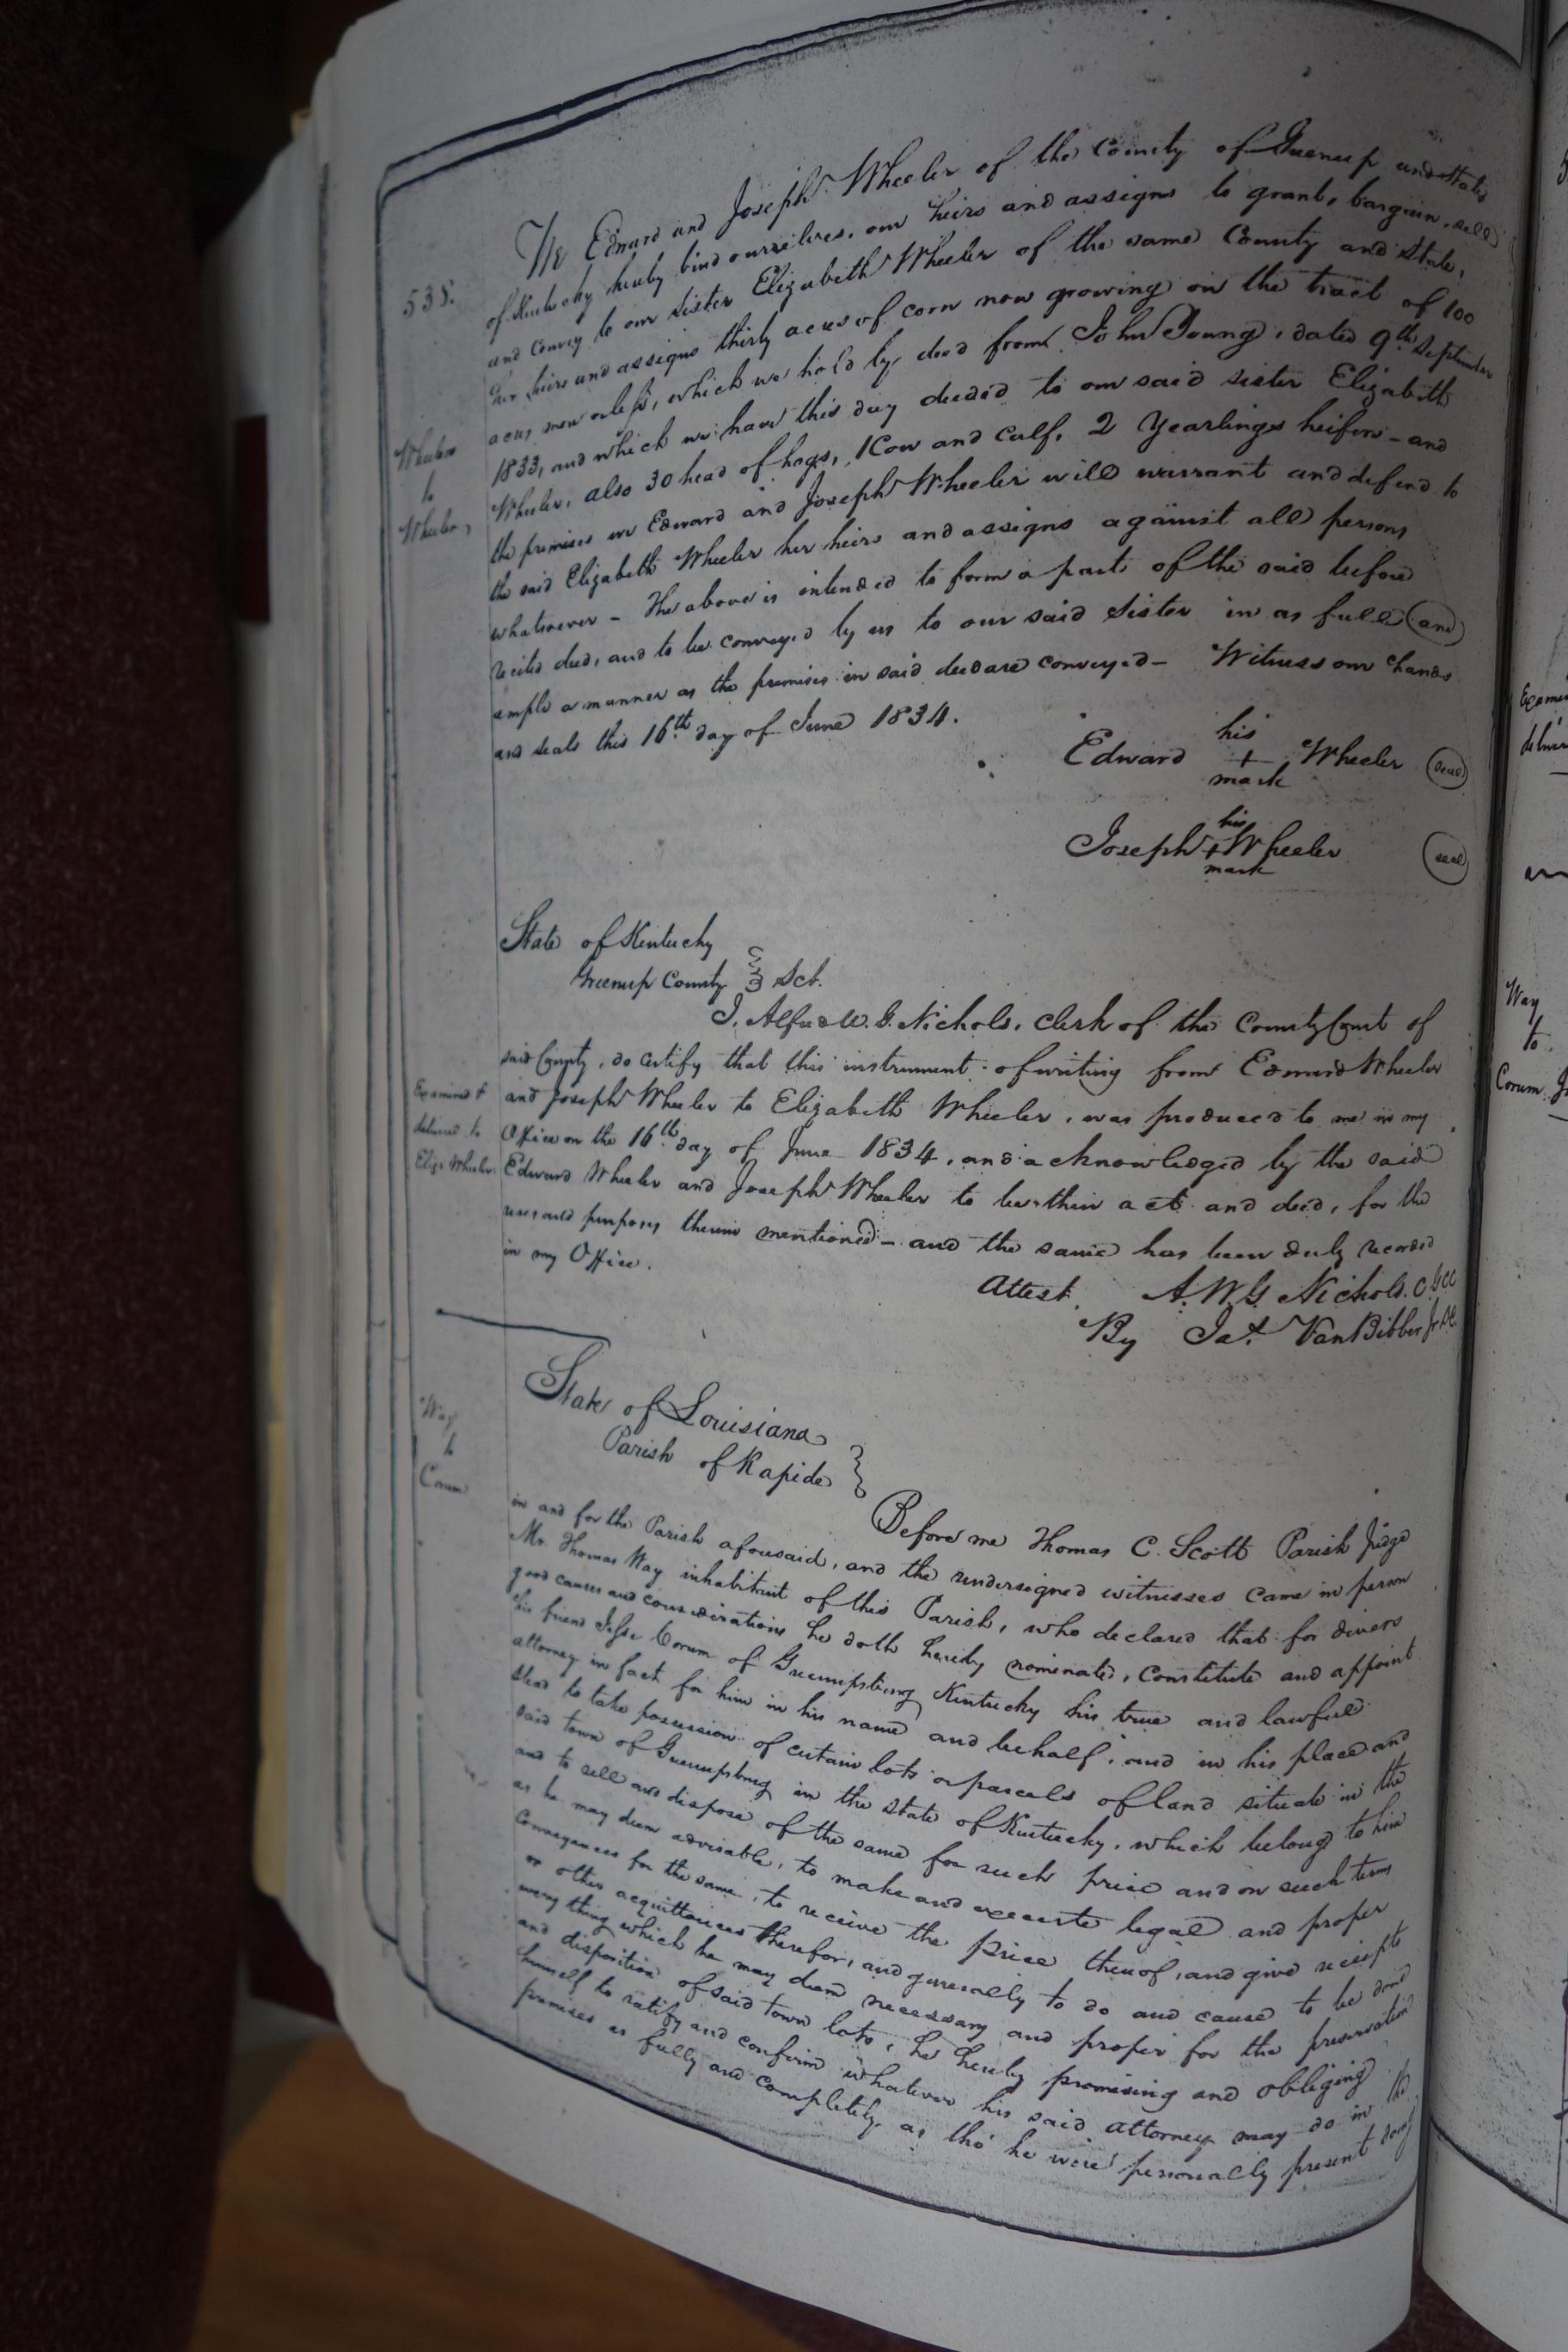 538.
We Edward and Joseph Wheeler of the County of Greenup and State
of Kentucky hereby bind ourselves, our heirs and assigns to grant, bargain, sell
and convey to our sister Elizabeth Wheeler of the same County and State,
her heirs and assigns thirty acres of corn now growing on the tract of 100
acres more or less, which we hold by deed from John Young, dated 9th September
1833, and which we have this day deeded to our said sister Elizabeth
Wheeler, also 30 head of hogs, 1 Cow and Calf, 2 Yearlings heifers - and
the premises we Edward and Joseph Wheeler will warrant and defend to
the said Elizabeth Wheeler her heirs and assigns against all persons
whatsoever - The above is intended to form a part of the said before
recited deed, and to be conveyed by us to our said Sister in as full and
ample a manner as the premises in said deed are conveyed - Witness our hands
and seals this 16th day of June 1834.
Wheelers
to
Wheeler,
his
Edward + Wheeler seal
mark
his
Joseph + Wheeler seal
mark
State of Kentucky
Greenup County Sct.
I, Alfred W. G. Nichols, Clerk of the County Court of
said County, do certify that this instrument of writing from Edward Wheeler
and Joseph Wheeler to Elizabeth Wheeler, was produced to me in my
Office on the 16th day of June 1834, and acknowledged by the said
Edward Wheeler and Joseph Wheeler to be their act and deed, for the
uses and purposes therein mentioned - and the same has been duly recorded
in my Office.
Examined &
delivered to
Eliza Wheeler.
Attest, A. W. G. Nichols. C.G.C.C
By Jas. VanBibber Jr. D.C.
Way
to
Corum
State of Louisiana
Parish of Rapide
Before me Thomas C. Scott Parish Judge
in and for the Parish aforesaid, and the undersigned witnesses came in person
Mr. Thomas Way inhabitant of this Parish, who declared that for divers
good causes and considerations he doth hereby nominate, constitute and appoint
his friend Jesse Corum of Greenupsburg Kentucky his true and lawful
attorney in fact for him in his name and behalf, and in his place and
stead to take possession of certain lots or parcels of land situate in the
said town of Greenupsburg in the state of Kentucky, which belong to him
and to sell and dispose of the same for such price and on such terms
as he may deem advisable, to make and execute legal and proper
conveyances for the same, to receive the price thereof, and give receipts
or other acquittances therefor, and generally to do and cause to be done
every thing which he may deem necessary and proper for the preservation
and disposition of said town lots, he hereby promising and obliging
himself to ratify and confirm whatever his said attorney may do in the
premises as fully and completely as tho' he were personally present doing
Way
to